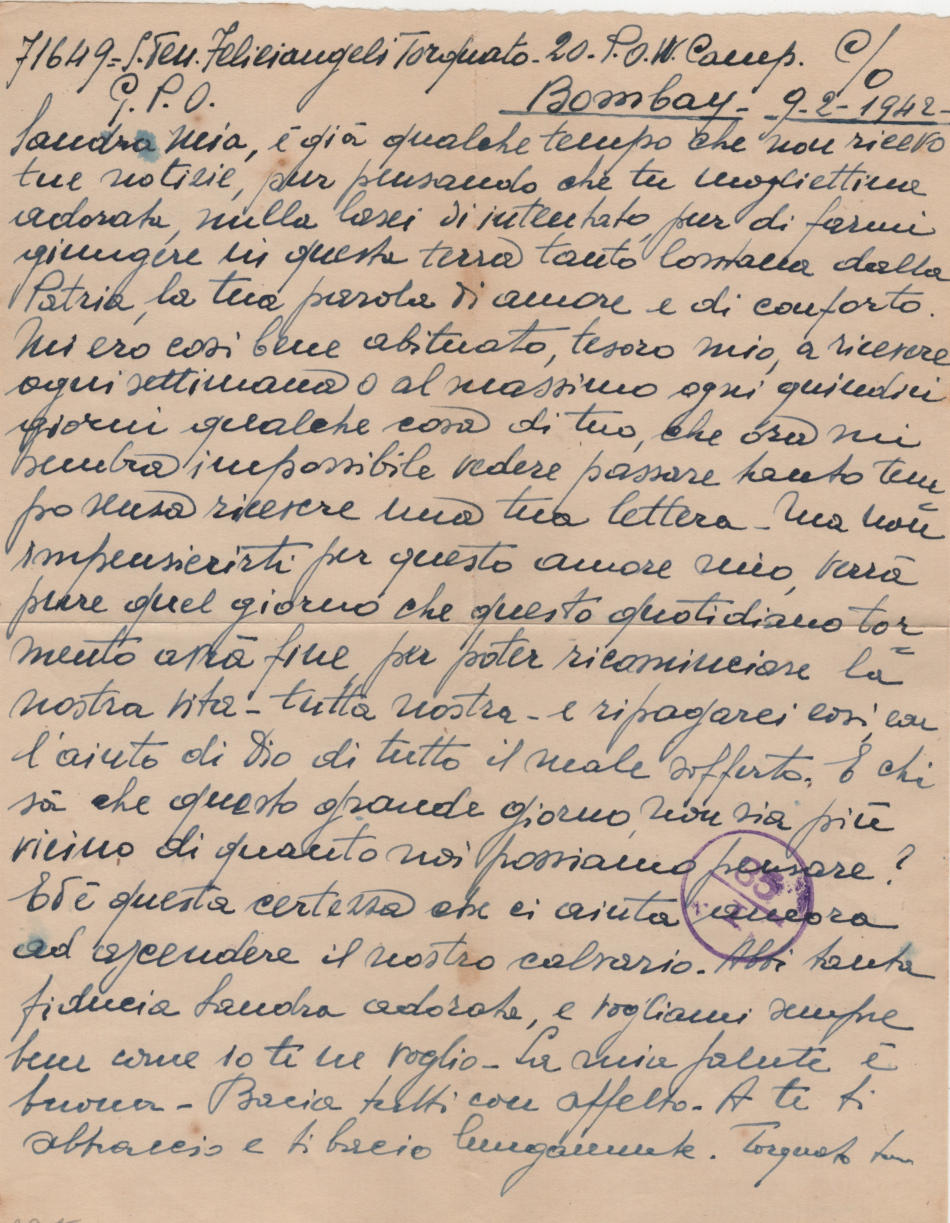 71649= S.Ten. Feliciangeli Torquato - 20 - P.O.W. Camp. C/o
G.P.O. Bombay - 9-2-1942-
Sandra mia, è già qualche tempo che non ricevo
tue notizie, pur pensando che tu mogliettina
adorata, nulla lasci di intentato, pur di farmi
giungere in questa terra tanto lontana dalla
Patria, la tua parola di amore e di conforto.
Mi ero così bene abituato, tesoro mio, a ricevere
ogni settimana o al massimo ogni quindici
giorni qualche cosa di tuo, che ora mi
sembra impossibile vedere passare tanto tem=
po senza ricevere una tua lettera - Ma non
impensierirti per questo amore mio, verrà
pure quel giorno che questo quotidiano tor=
mento avrà fine, per poter ricominciare la
nostra vita - tutta nostra - e ripagarci così, con
l'aiuto di Dio di tutto il male sofferto. E chi
sà che questo grande giorno, non sia più
vicino di quanto noi possiamo pensare?
Ed è questa certezza che ci aiuta ancora
ad ascendere il nostro calvario. Abbi tanta
fiducia Sandra adorata, e vogliami sempre
bene come io te ne voglio - La mia salute è
buona - Bacia tutti con affetto. A te ti
abbraccio e ti bacio lungamente. Torquato tuo